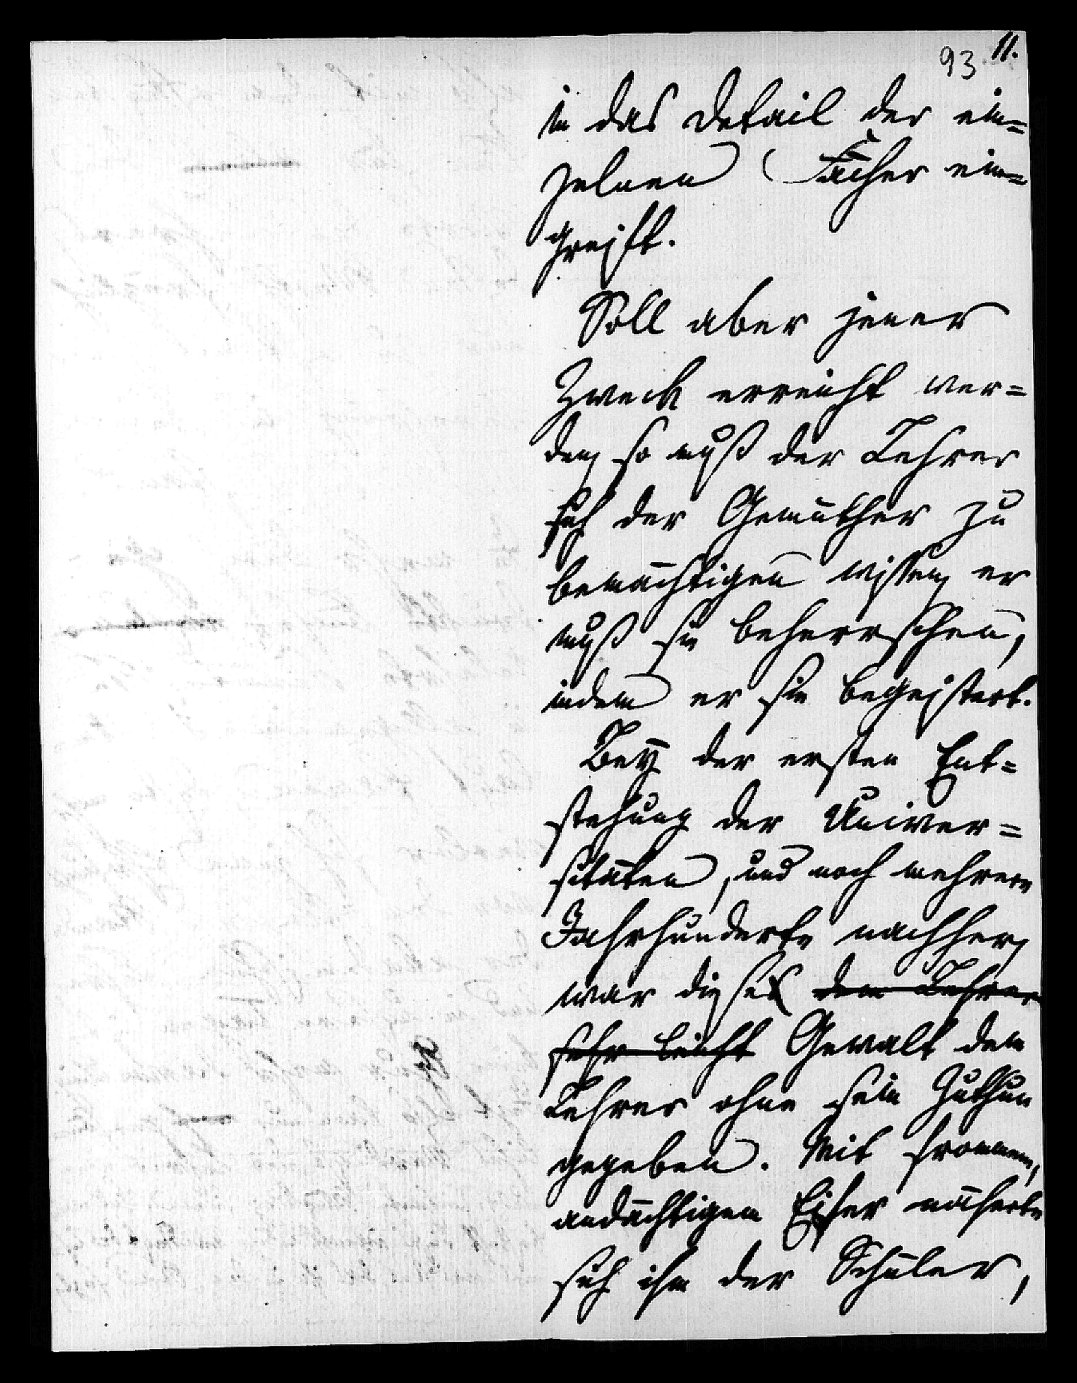 93 11.
in das Detail der ein=
zelnen Fächer ein=
greift.
Soll aber jener
Zweck erreicht wer=
den, so muß der Lehrer
sich der Gemüther zu
bemächtigen wissen, er
muß sie beherrschen,
indem er sie begeistert.
Bey der ersten Ent=
stehung der Univer=
sitäten, und noch mehrere
Jahrhunderte nachher,
war diese dem Lehrer
sehr leicht Gewalt dem
Lehrer ohne sein Zuthun
gegeben. Mit frommem,
andächtigem Eifer näherte
sich ihm der Schüler,